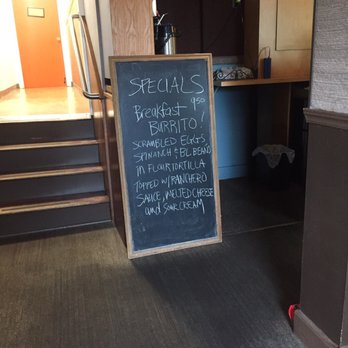 SPECIALS
Breakfast 9.50
BURRITO!
SCRAMBLED EGGS
SPINANCH & BL BEANS
IN FLOUR TORTILLA
TOPPED W/ RANCHERO
SAUCE, MELTED CHEESE
and SOUR CREAM